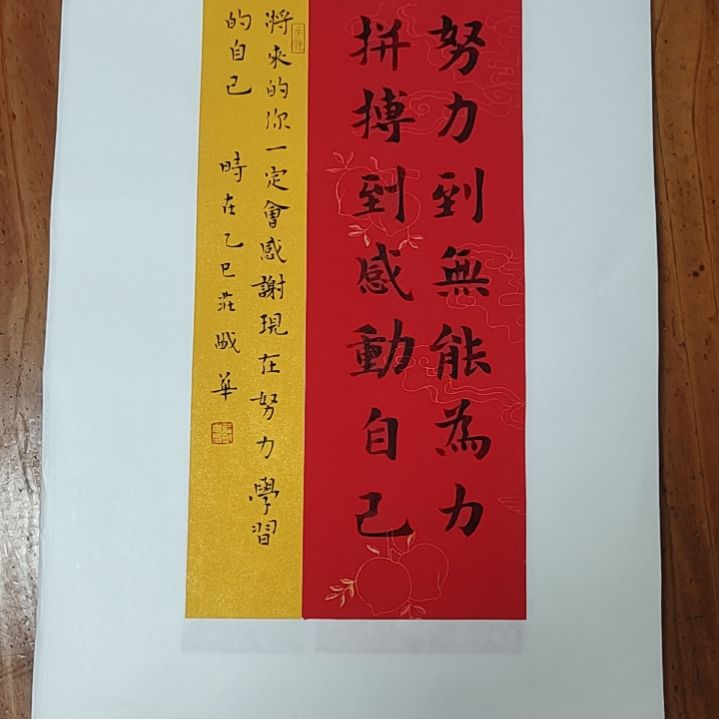 努力到無能為力
拼搏到感動自己
將來的你一定會感謝現在努力學習
的自己
時在乙巳莊晟華